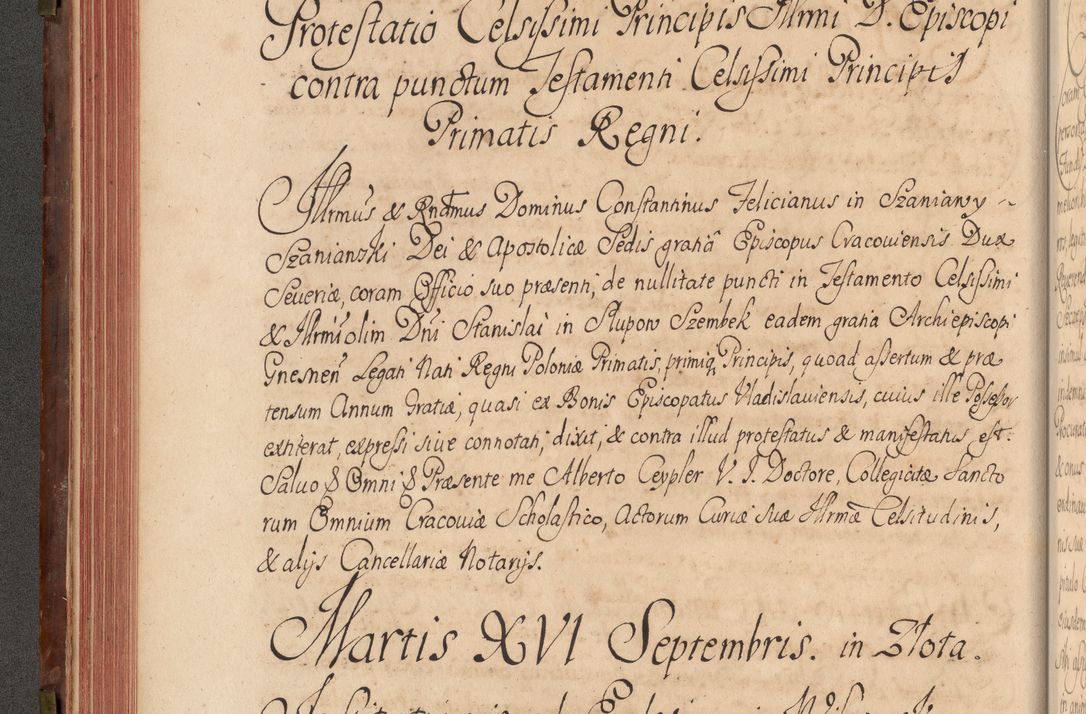 Protestatio Celsissimi Principis Illrmi D. Episcopi
contra punctum Testamenti Celsissimi Principis
Primatis Regni.
Illrmus & Rndmus Dominus Constantinus Felicianus in Szaniawy
Szaniawski Dei & Apostolicæ Sedis gratiâ Episcopus Cracoviensis Dux
Severiæ, coram Officio suo præsenti, de nullitate puncti in Testamento Celsissimi
& Illrmi olim Dni Stanislai in Slupow Szembek eadem gratia Archiepiscopi
Gnesnen Legati Nati Regni Poloniæ Primatis, primiq Principis, quoad assertum & præ
tensum Annum Gratiæ, quasi ex Bonis Episcopatus Vladislaviensis, cuius ille Possessor
extiterat, expressi sive connotati, dixit, & contra illud protestatus & manifestatus est.
Salvo § Omni § Præsente me Alberto Ceypler V. J. Doctore, Collegiatæ Sancto
rum Omnium Cracoviæ Scholastico, Actorum Curiæ Suæ Illrmæ Celsitudinis,
& alijs Cancellariæ Notarijs.
Martis XVI Septembris. in Zlota.